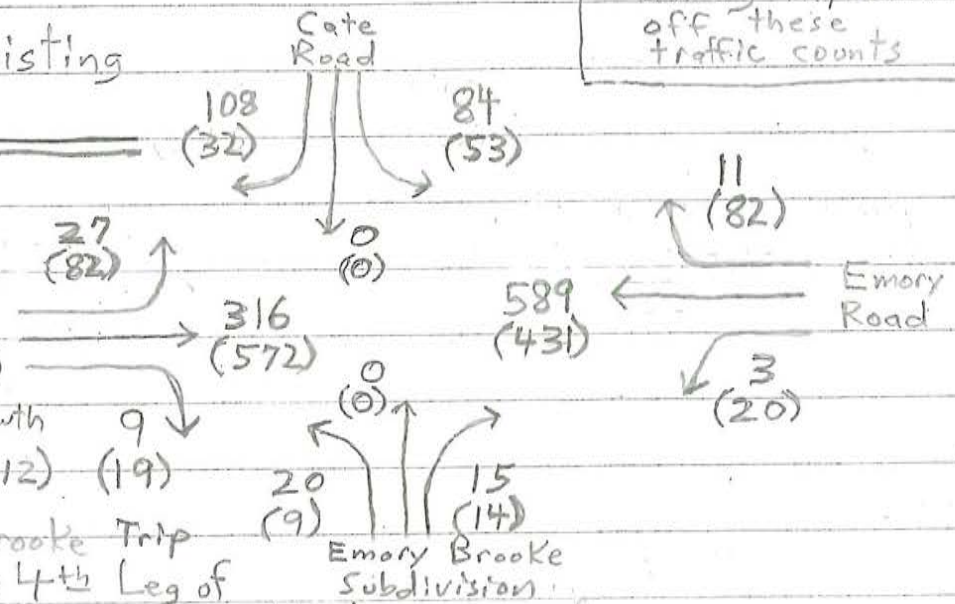 isting
Cate
Road
off these
traffic counts
108
(32)
84
(53)
11
(82)
27
(82)
0
(0)
Emory
Road
589
(431)
316
(572)
3
(20)
0
(0)
wth
9
12)
(19)
20
(9)
15
(14)
rooke Trip
4th Leg of
Emory Brooke
Subdivision